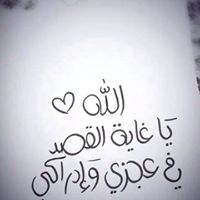 الله
يَا غاية القصد
في عجزي وَإدراكي